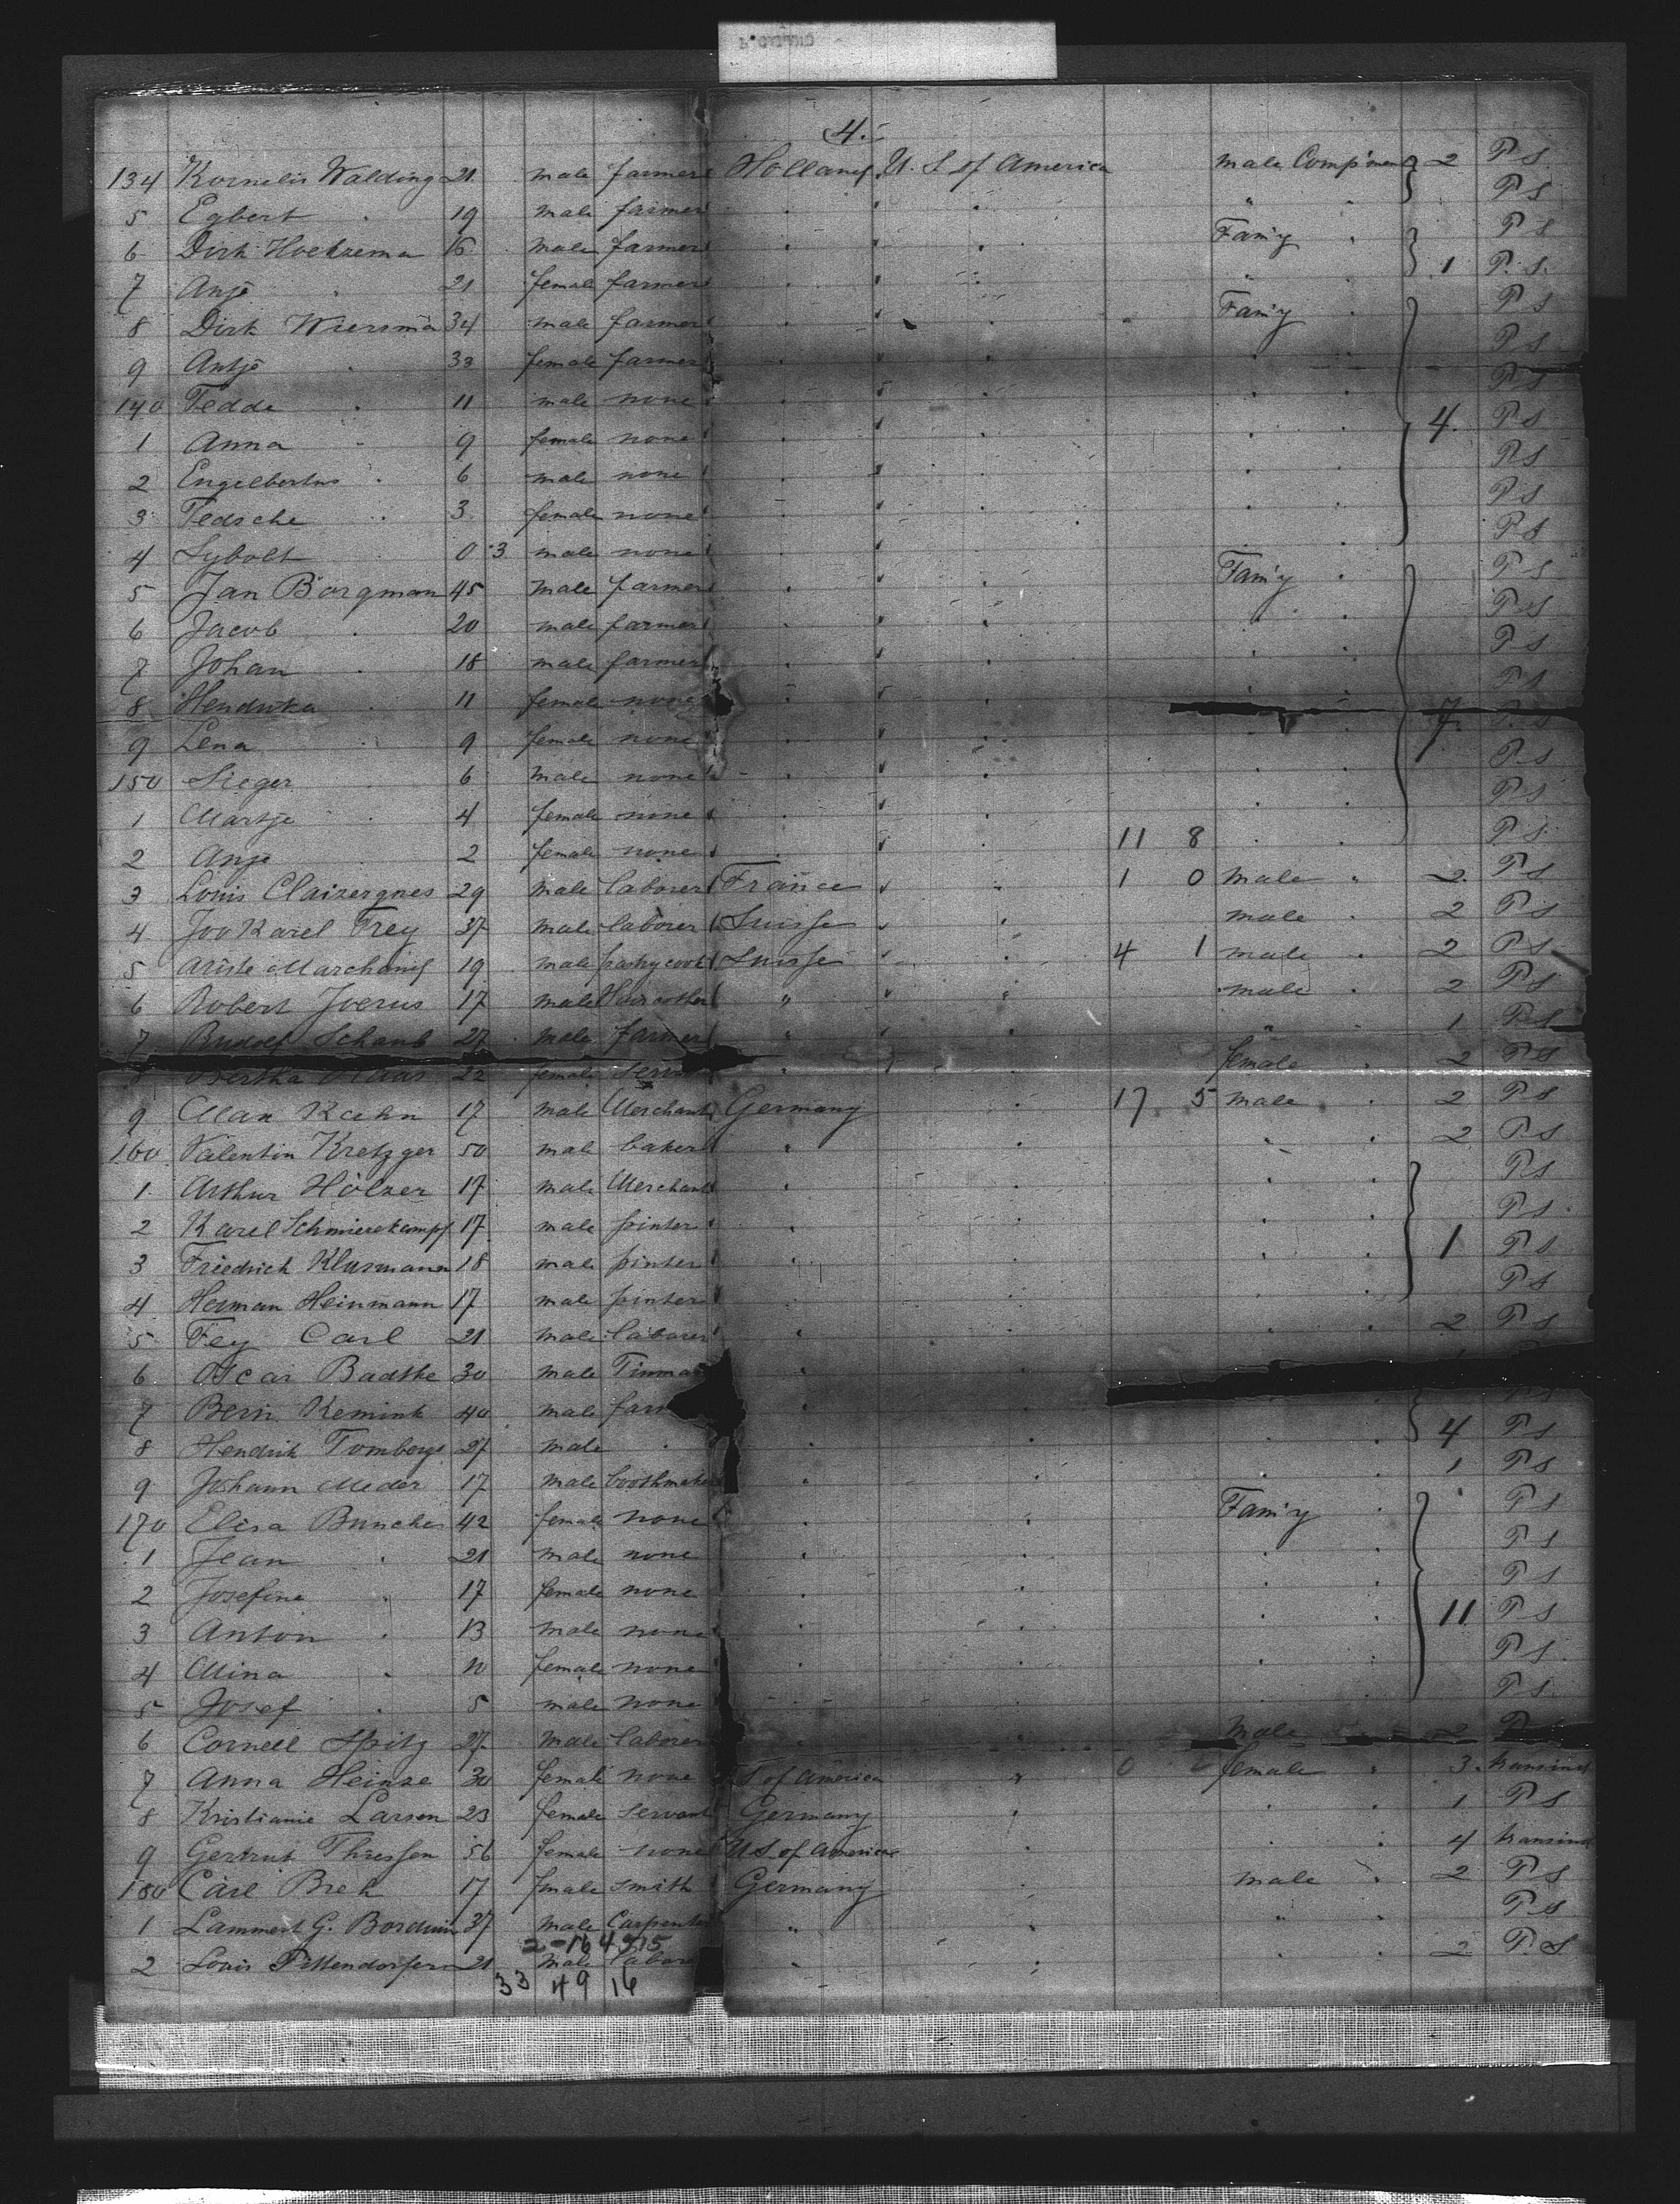 4.
134 Kornelis Walding 21 male farmer Holland U. S of America male Comp'ment 2 P S
5 Egbert " 19 male farmer " " " " P S
6 Dirk Hoeksema 16 male farmer " " Fam'y " P S
7 Anje " 21 female farmer " " " 1 P. S.
8 Dirk Wiersma 34 male farmer " " Fam'y " P S
9 Antje " 33 female farmer " " " " P S
140 Fedde " 11 male none " " " " P S
1 Anna " 9 female none " " " " 4. P S
2 Engelbertus " 6 male none " " " " P S
3 Tedsche " 3 female none " " " " P S
4 Sybolt 0 3 male none " " " " P S
5 Jan Borgman 45 male farmer " " Fam'y " P S
6 Jacob " 20 male farmer " " " " P S
7 Johan " 18 male farmer " " " " P S
8 Hendrika " 11 female none " " " " P S
9 Lena " 9 female none " " " " 7. P S
150 Sieger " 6 male none " " " " P S
1 Martje " 4 female none " " " " P S
2 Anje 2 female none " " 11 8 " " P S
3 Louis Claizergnes 29 male laborer France " " 1 0 male " 2. P S
4 Joo Karel Frey 37 male laborer Suisse " " male " 2 P S
5 Ariste Marchand 19 male pastry cook Suisse " " 4 1 male " 2 P S
6 Robert Joerus 17 male " " " male " 2 P S
7 Rudolf Schaub 27 male farmer " " " " " 1 P S
8 Bertha Maas 22 female serv " " female " 2 P S
9 Max Kahn 17 male Merchant Germany 17 5 male " 2 P S
160 Valentin Kretzger 50 male baker " " " " 2 P S
1 Arthur Hölzer 17 male Merchant " " " P S
2 Karel Schmierekampf 17 male printer " " " " P S
3 Friedrich Klusmann 18 male printer " " " 1 P S
4 Herman Heinmann 17 male printer " " " P S
5 Fey Carl 21 male laborer " " " " 2 P S
6 Oscar Badtke 30 male Tinma "
7 Bern Kemink 40 male farm " " P S
8 Hendrik Tomberge 27 male " " " " " 4 P S
9 Johann Meder 17 male boothmaker " " " 1 P S
170 Elisa Bunche 42 female none " " Fam'y " P S
1 Jean " 21 male none " " " " P S
2 Josefine " 17 female none " " " " P S
3 Anton " 13 male none " " " " 11 P S
4 Mina " 10 female none " " " " P S
5 Josef " 5 male none " " " P S
6 Cornell Spitz 27 male laborer " male 2 P S
7 Anna Heinse 30 female none S of America " 0 female " 3 transind
8 Kristianie Larsen 23 female servant Germany " " " 1 P S
9 Gertrut Thiessen 56 female none U S of America " " " 4 transind
180 Carl Brek 17 female smith Germany " male " 2 P S
1 Lammert G. Borduin 37 male Carpenter " " " " P S
2-16 4515
2 Louis Pittendorfer 21 male labore " " " " 2 P S
33 49 16